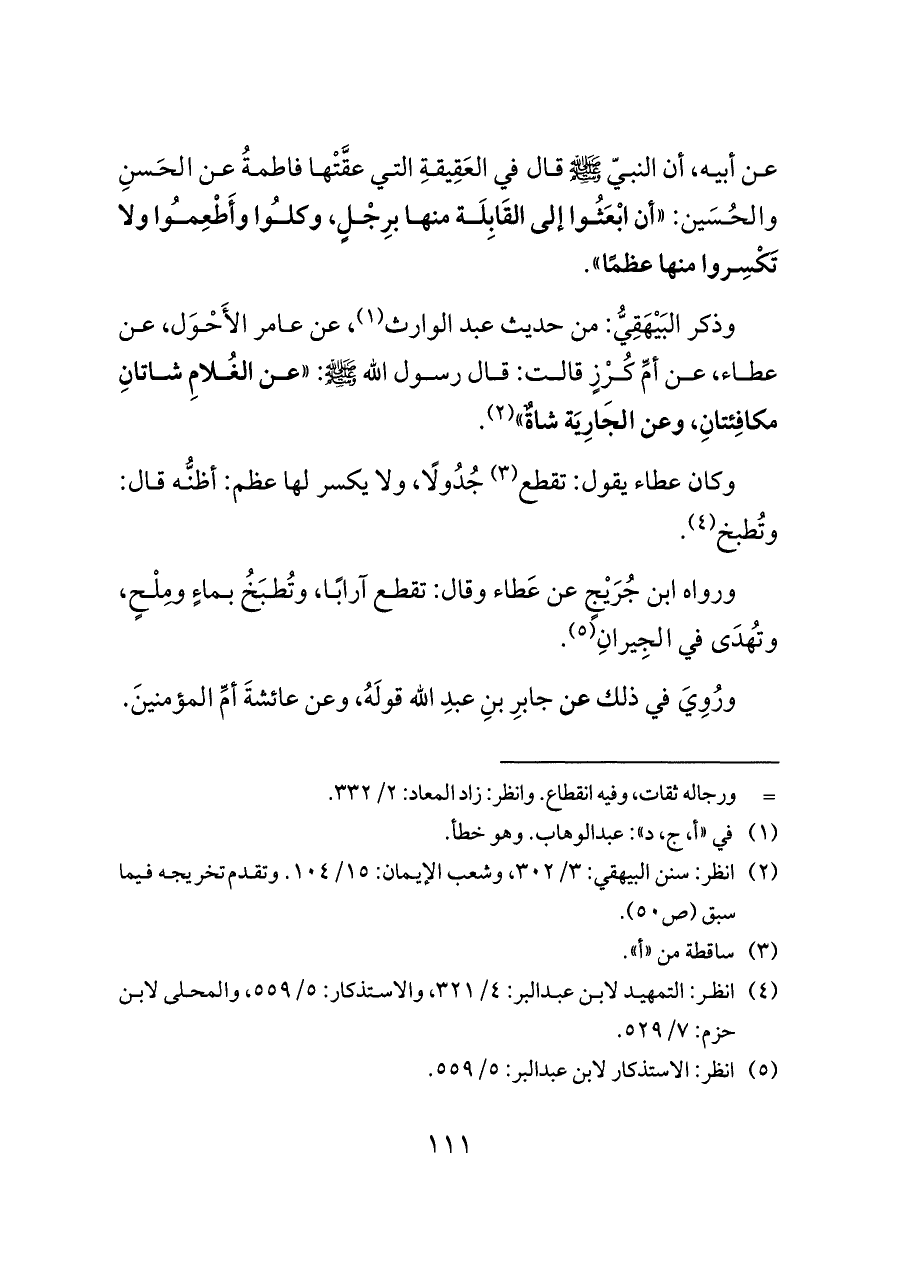 عن أبيه، أن النبيّ ﷺ قال في العَقِيقةِ التي عقَّتْها فاطمةُ عن الحَسنِ
والحُسَين: «أن ابْعَثُوا إلى القَابِلَة منها برِجْلٍ، وكلُوا وأَطْعِمُوا ولا
تَكْسِروا منها عظمًا».
وذكر البَيْهَقِيُّ: من حديث عبد الوارث(١)، عن عامر الأَحْوَل، عن
عطاء، عن أمِّ كُرْزٍ قالت: قال رسول الله ﷺ: «عن الغُلامِ شاتانِ
مكافِئتانِ، وعن الجَارِيَة شاةٌ»(٢).
وكان عطاء يقول: تقطع(٣) جُدُولًا، ولا يكسر لها عظم: أظنُّه قال:
وتُطبخ(٤).
ورواه ابن جُرَيْجٍ عن عَطاء وقال: تقطع آرابًا، وتُطبَخُ بماءٍ ومِلْحٍ،
وتهُدَى في الجِيرانِ(٥).
ورُوِيَ في ذلك عن جابرِ بنِ عبدِ الله قولَهُ، وعن عائشةَ أمِّ المؤمنينَ.
= ورجاله ثقات، وفيه انقطاع. وانظر: زاد المعاد: ٢/ ٣٣٢.
(١) في «أ، ج، د»: عبدالوهاب. وهو خطأ.
(٢) انظر: سنن البيهقي: ٣/ ٣٠٢، وشعب الإيمان: ١٥/ ١٠٤. وتقدم تخريجه فيما
سبق (ص٥٠).
(٣) ساقطة من «أ».
(٤) انظر: التمهيد لابن عبدالبر: ٤/ ٣٢١، والاستذكار: ٥/ ٥٥٩، والمحلى لابن
حزم: ٧/ ٥٢٩.
(٥) انظر: الاستذكار لابن عبدالبر: ٥/ ٥٥٩.
١١١